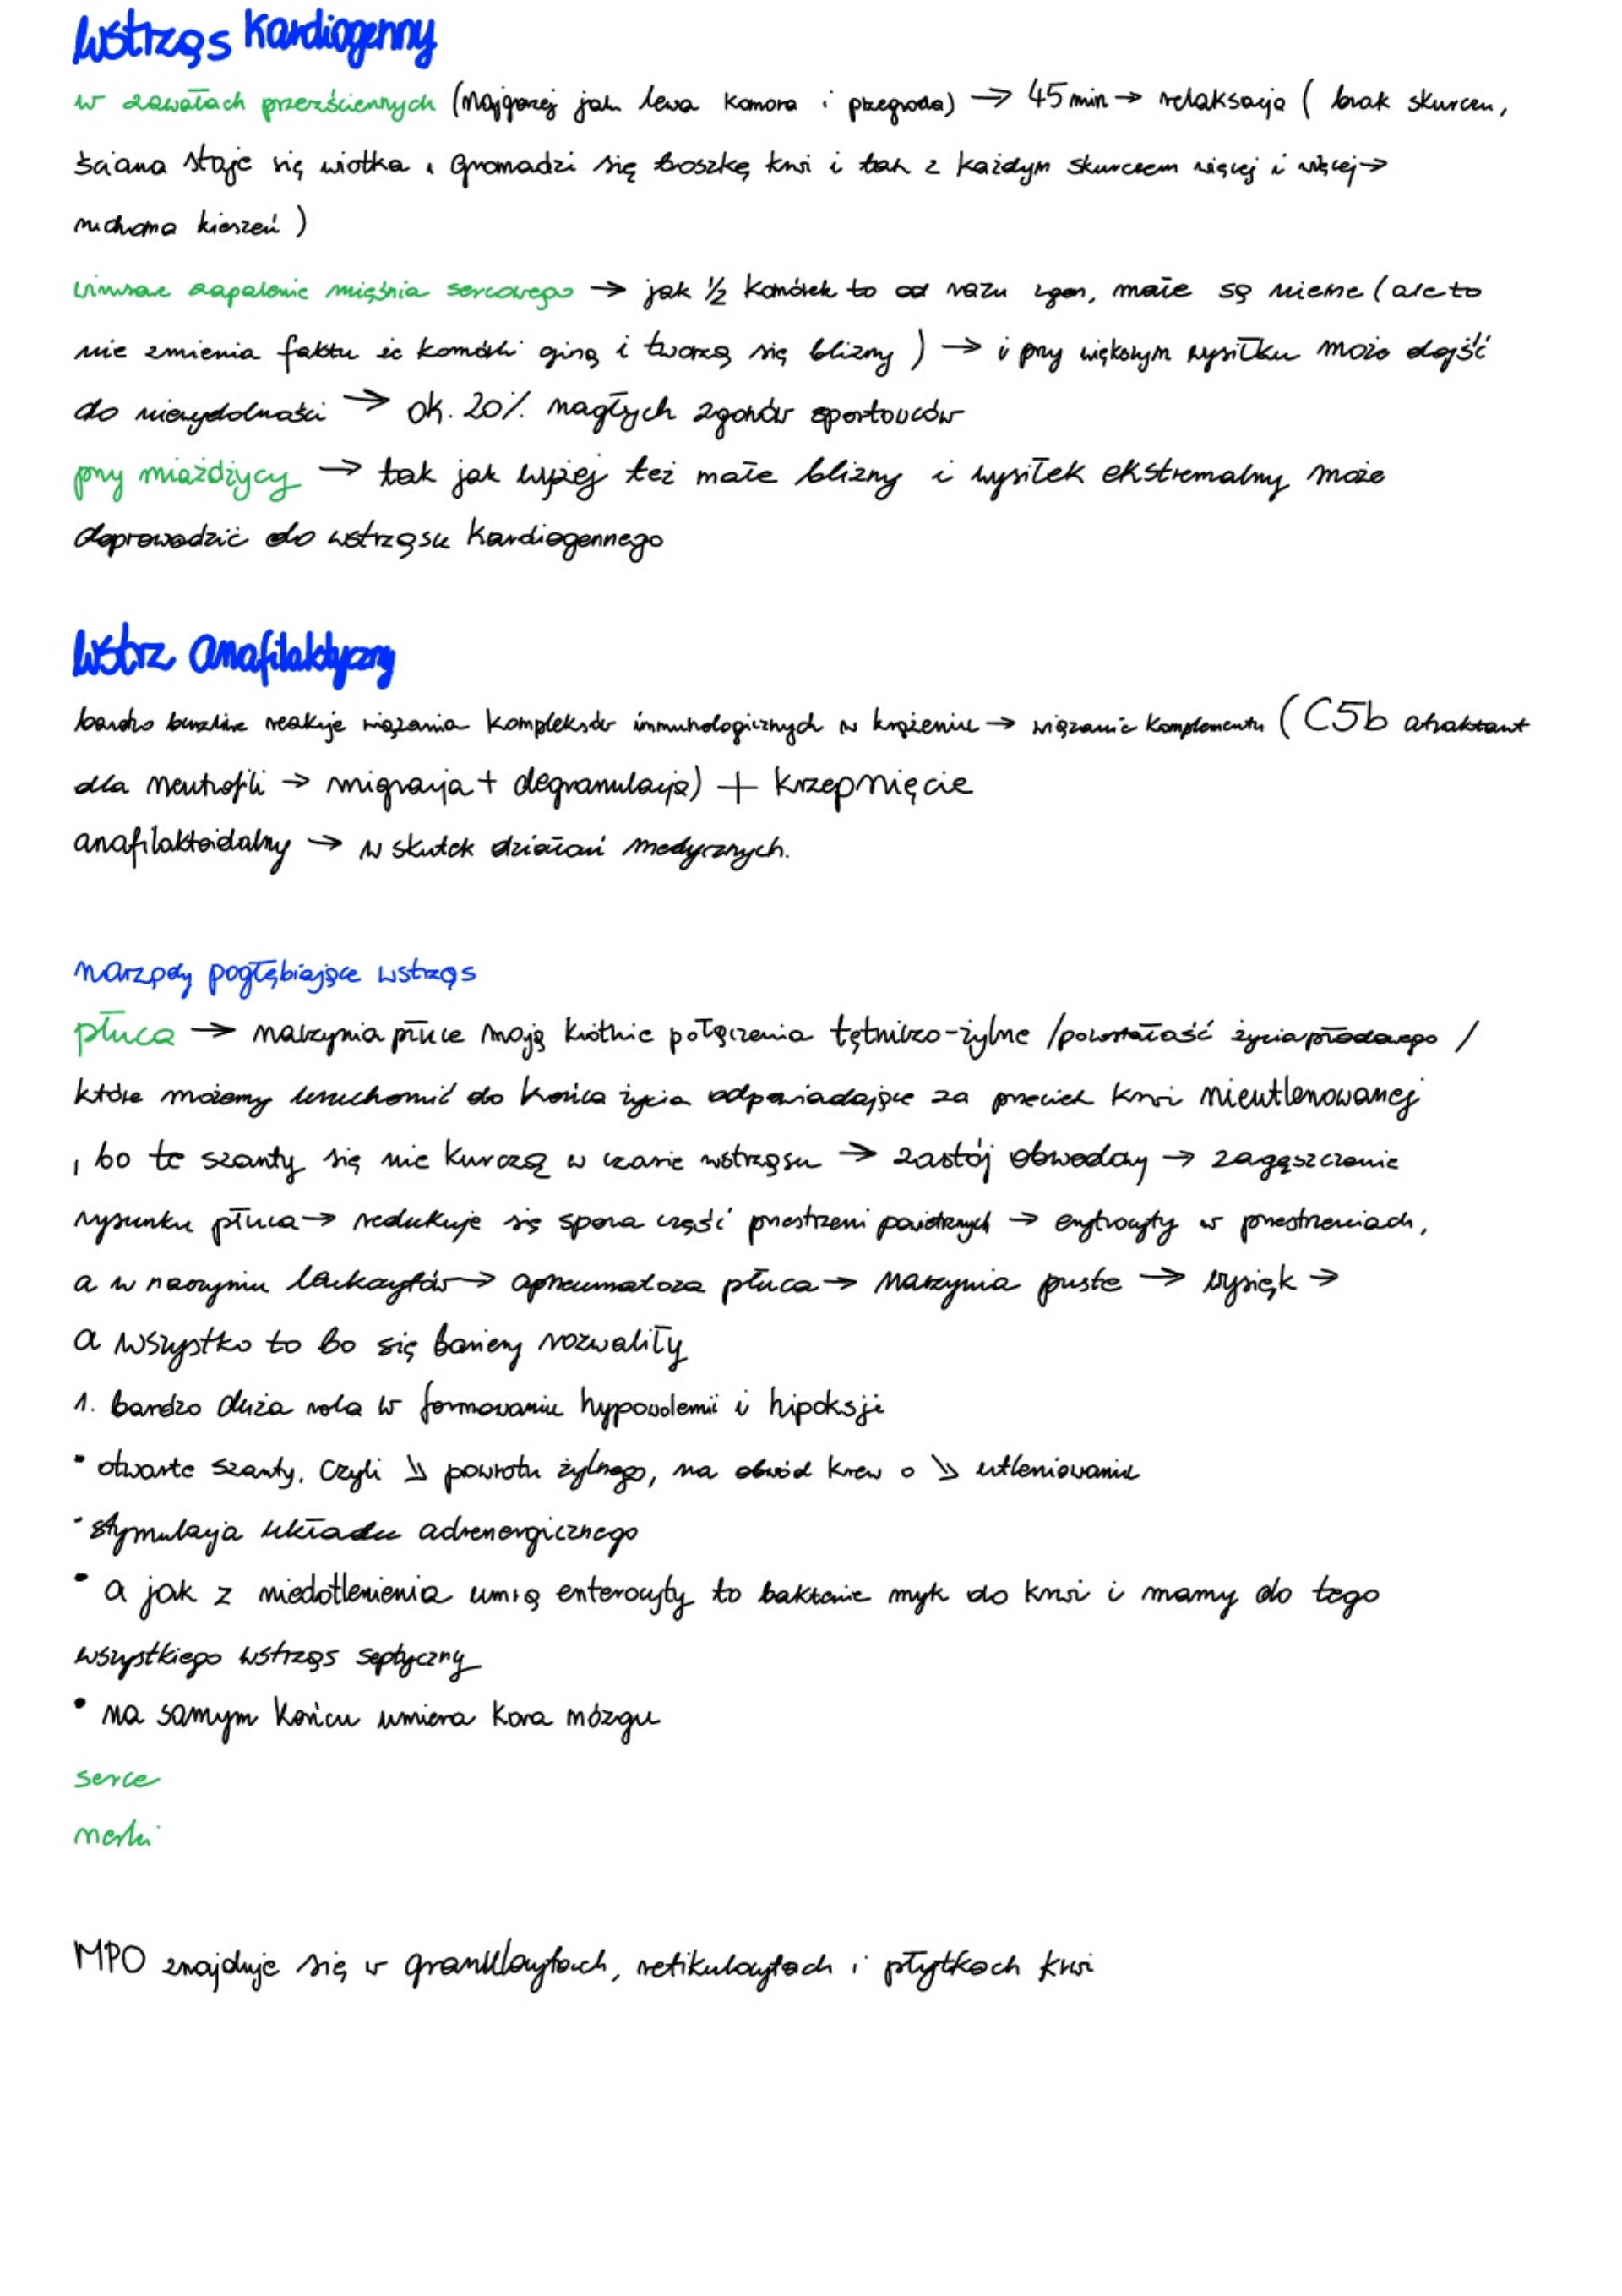 Wstrząs Kardiogenny
w zawałach przezściennych (najgorzej jak lewa komora i przegroda) → 45 min → relaksacja ( brak skurczu,
ściana staje się wiotka i gromadzi się troszkę krwi i tak z każdym skurczem więcej i więcej →
ruchoma kieszeń )
wirusowe zapalenie mięśnia sercowego → jak 1/2 komórek to od razu zgon, małe są nieme ( ale to
nie zmienia faktu że komórki giną i tworzą się blizny ) → i przy większym wysiłku może dojść
do niewydolności → ok. 20% nagłych zgonów sportowców
przy miażdżycy → tak jak wyżej też małe blizny i wysiłek ekstremalny może
doprowadzić do wstrząsu kardiogennego
Wstrz anafilaktyczny
bardzo burzliwe reakcje wiązania kompleksów immunologicznych w krążeniu → wiązanie komplementu ( C5b atraktant
dla neutrofili → migracja + degranulacja) + krzepnięcie
anafilaktoidalny → w skutek działań medycznych.
narządy pogłębiające wstrząs
płuca → naczynia płuce mają krótkie połączenia tętniczo-żylne / pozostałość życia płodowego /
które możemy uruchomić do końca życia odpowiadające za przeciek krwi nieutlenowanej
, bo te szanty się nie kurczą w czasie wstrząsu → zastój obwodowy → zagęszczenie
rysunku płuca → redukuje się spora część przestrzeni powietrznych → erytrocyty w przestrzeniach,
a w naczyniu leukocytów → apneumatoza płuca → naczynia puste → wysięk →
a wszystko to bo się bariery rozwaliły
1. bardzo duża rola w formowaniu hypowolemii i hipoksji
• otwarte szanty, czyli ↘ powrotu żylnego, na obwód krew o ↘ utleniowaniu
• stymulacja układu adrenergicznego
• a jak z niedotlenienia umrą enterocyty to bakterie myk do krwi i mamy do tego
wszystkiego wstrząs septyczny
• na samym końcu umiera kora mózgu
serce
nerki
MPO znajduje się w granulocytach, retikulocytach i płytkach krwi